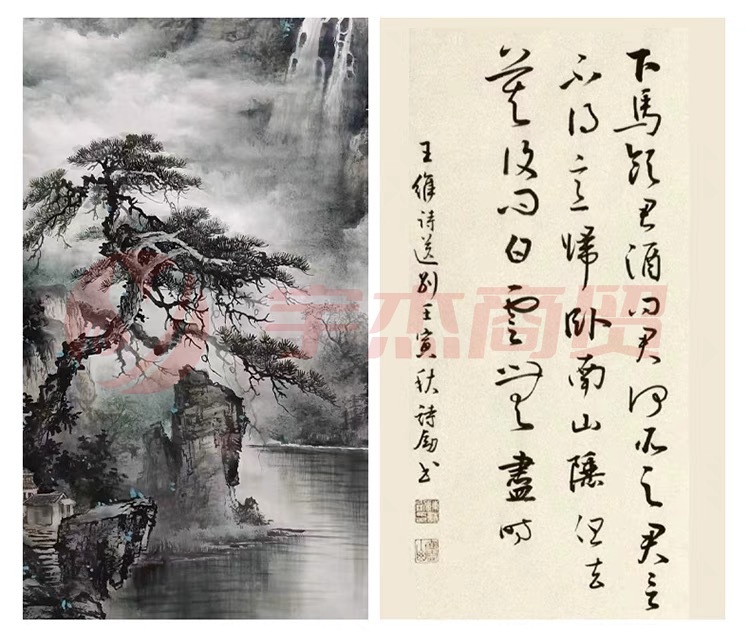 下馬飲君酒問君何所之君言
不得意歸臥南山陲但去
莫復問白雲無盡時
王維詩送别壬寅秋詩书
宇杰商贸